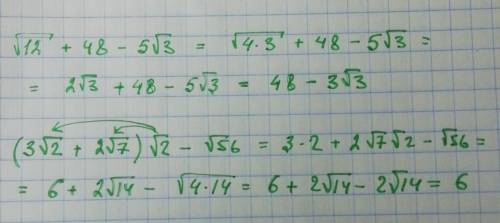 √12 + 48 − 5√3 = √4·3 + 48 − 5√3 =
= 2√3 + 48 − 5√3 = 48 − 3√3
(3√2 + 2√7)√2 − √56 = 3·2 + 2√7√2 − √56 =
= 6 + 2√14 − √4·14 = 6 + 2√14 − 2√14 = 6